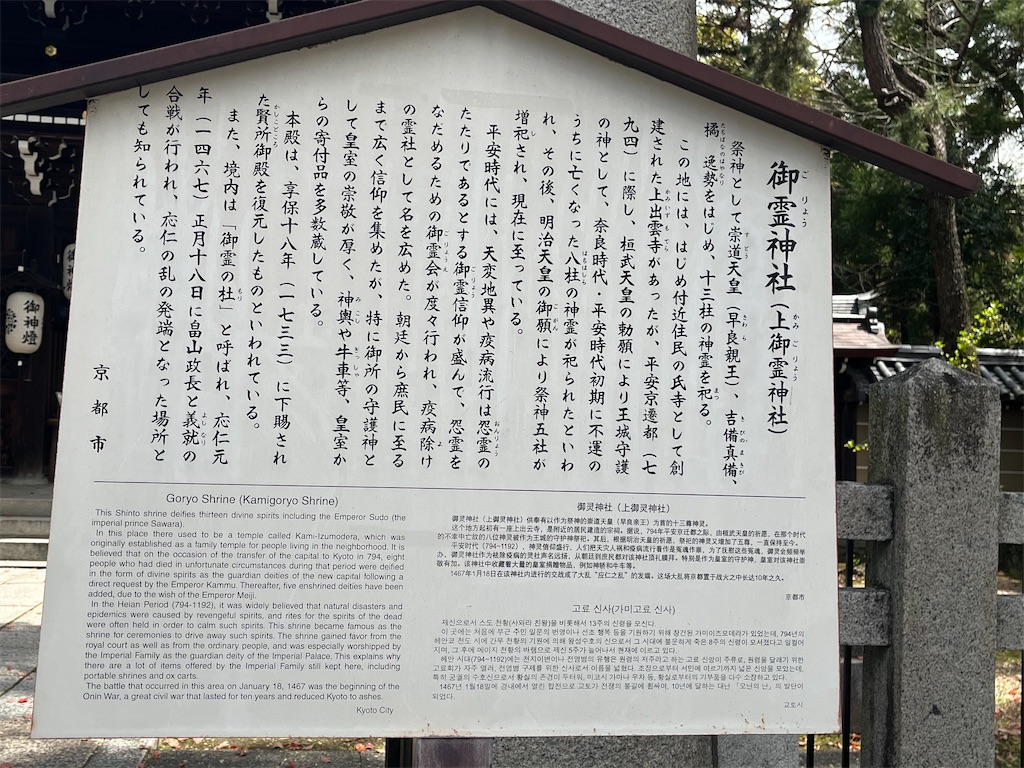 御霊神社（上御霊神社）
祭神として崇道天皇（早良親王）、吉備真備、
橘　逸勢をはじめ、十三柱の神霊を祀る。
この地には、はじめ付近住民の氏寺として創
建された上出雲寺があったが、平安京遷都（七
九四）に際し、桓武天皇の勅願により王城守護
の神として、奈良時代・平安時代初期に不運の
うちに亡くなった八柱の神霊が祀られたといわ
れ、その後、明治天皇の御願により祭神五社が
増祀され、現在に至っている。
平安時代には、天変地異や疫病流行は怨霊の
たたりであるとする御霊信仰が盛んで、怨霊を
なだめるための御霊会が度々行われ、疫病除け
の霊社として名を広めた。朝廷から庶民に至る
まで広く信仰を集めたが、特に御所の守護神と
して皇室の崇敬が厚く、神輿や牛車等、皇室か
らの寄付品を多数蔵している。
本殿は、享保十八年（一七三三）に下賜され
た賢所御殿を復元したものといわれている。
また、境内は「御霊の杜」と呼ばれ、応仁元
年（一四六七）正月十八日に畠山政長と義就の
合戦が行われ、応仁の乱の発端となった場所と
しても知られている。
京都市
Goryo Shrine (Kamigoryo Shrine)
This Shinto shrine deifies thirteen divine spirits including the Emperor Sudo (the
imperial prince Sawara).
In this place there used to be a temple called Kami-Izumodera, which was
originally established as a family temple for people living in the neighborhood. It is
believed that on the occasion of the transfer of the capital to Kyoto in 794, eight
people who had died in unfortunate circumstances during that period were deified
in the form of divine spirits as the guardian deities of the new capital following a
direct request by the Emperor Kammu. Thereafter, five enshrined deities have been
added, due to the wish of the Emperor Meiji.
In the Heian Period (794-1192), it was widely believed that natural disasters and
epidemics were caused by revengeful spirits, and rites for the spirits of the dead
were often held in order to calm such spirits. This shrine became famous as the
shrine for ceremonies to drive away such spirits. The shrine gained favor from the
royal court as well as from the ordinary people, and was especially worshipped by
the Imperial Family as the guardian deity of the Imperial Palace. This explains why
there are a lot of items offered by the Imperial Family still kept here, including
portable shrines and ox carts.
The battle that occurred in this area on January 18, 1467 was the beginning of the
Onin War, a great civil war that lasted for ten years and reduced Kyoto to ashes.
Kyoto City
御灵神社（上御灵神社）
御灵神社（上御灵神社）供奉有以作为祭神的崇道天皇（早良亲王）为首的十三尊神灵。
这个地方起初有一座上出云寺，是附近的居民建造的宗祠。据说，794年平安京迁都之际，由桓武天皇的祈愿，在那个时代
的不幸中亡故的八位神灵被作为王城的守护神祭祀。其后，根据明治天皇的祈愿，祭祀的神灵又增加了五尊，一直保持至今。
平安时代（794-1192），神灵信仰盛行，人们把天灾人祸和疫病流行看作是冤魂作祟，为了抚慰这些冤魂，御灵会频频举
办，御灵神社作为祛除疫病的灵社声名远扬，从朝廷到庶民都对该神社顶礼膜拜。特别是作为皇室的守护神，皇室对该神社崇
敬有加。该神社中收藏着大量的皇室捐赠物品，例如神轿和牛车等。
1467年1月18日在该神社内进行的交战成了大乱“应仁之乱”的发端。这场大乱将京都置于战火之中长达10年之久。
京都市
고료 신사(가미고료 신사)
제신으로서 스도 천황(사와라 친왕)을 비롯해서 13주의 신령을 모신다.
교토시
御神燈